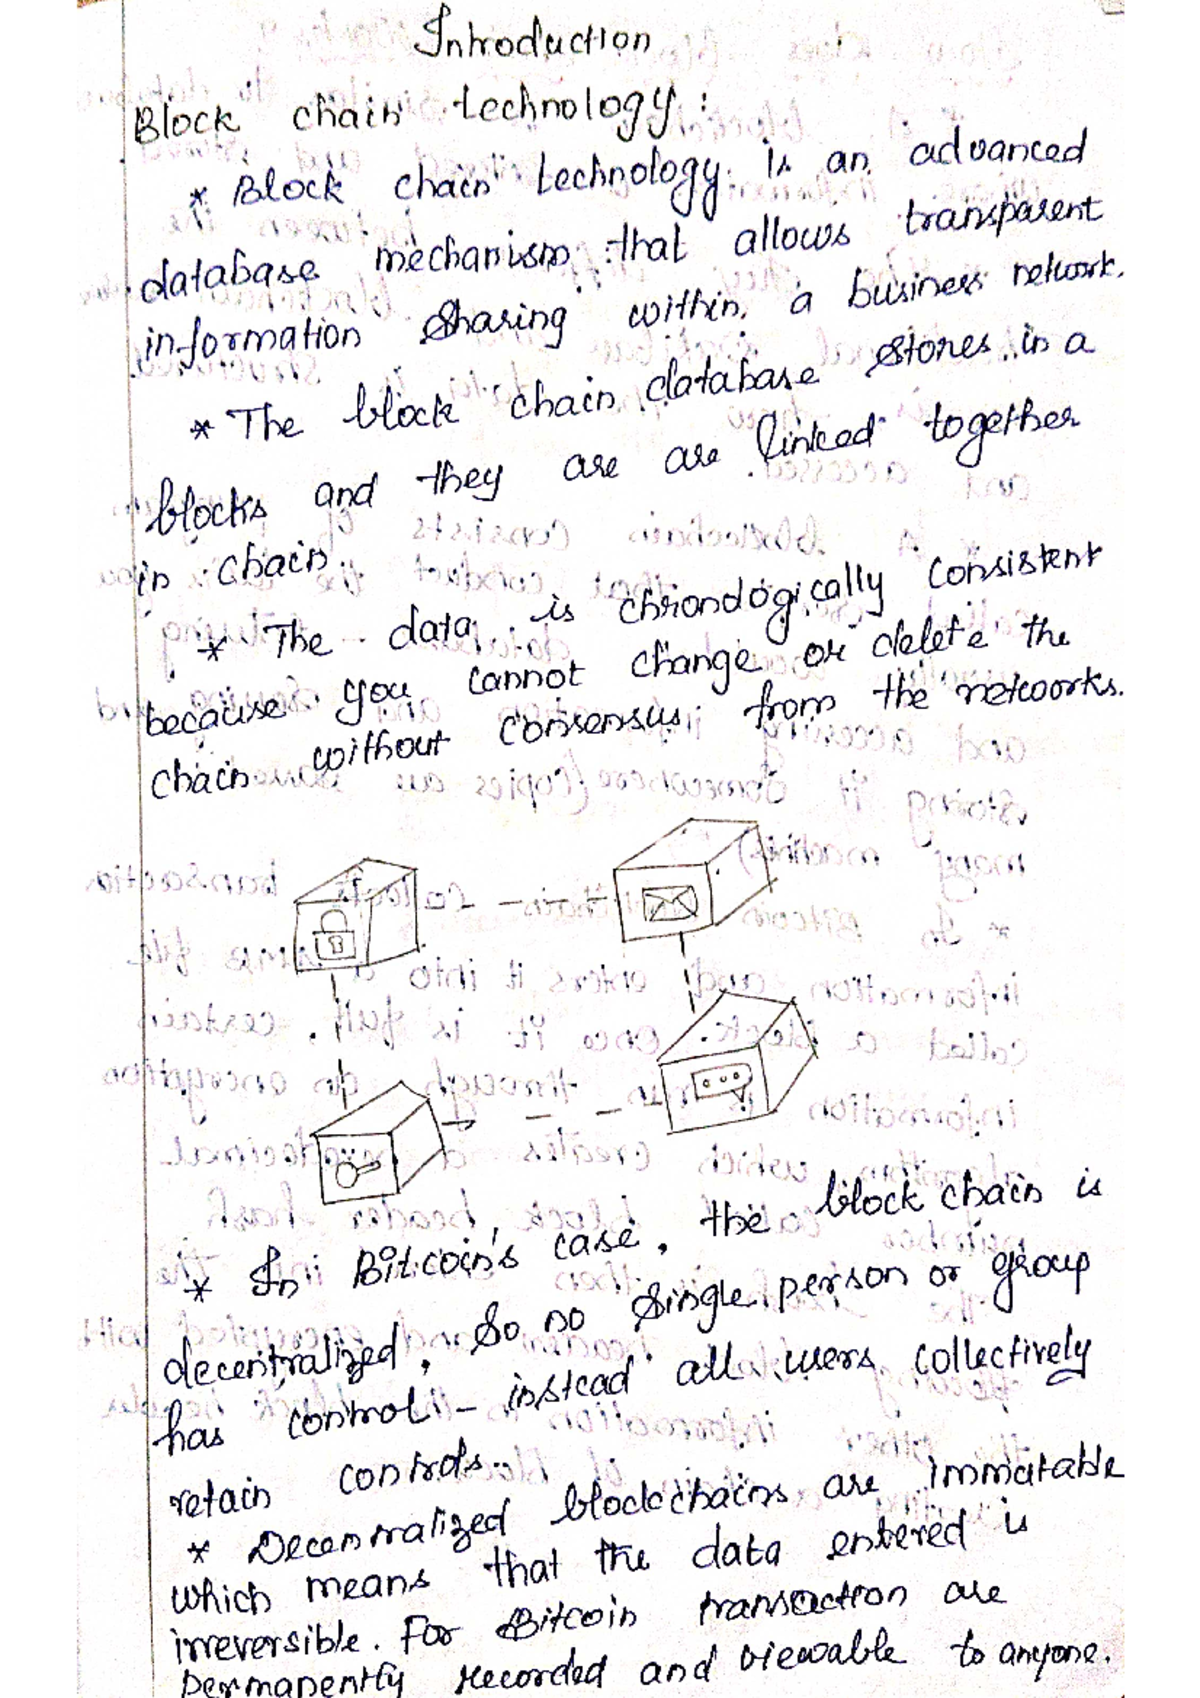 Introduction
Block chain technology:
* Block chain technology is an advanced
database mechanism that allows transparent
information sharing within a business network.
* The block chain database stores in a
blocks and they are are linked together
in chain.
* The data is chronologically consistent
because you cannot change or delete the
chain without consensus from the networks.
B
* In Bitcoin's case, the block chain is
decentralized, so no single person or group
has control - instead all users collectively
retain controls.
* Decentralized blockchains are immatable
which means that the data entered is
irreversible. For Bitcoin transaction are
permanently recorded and viewable to anyone.